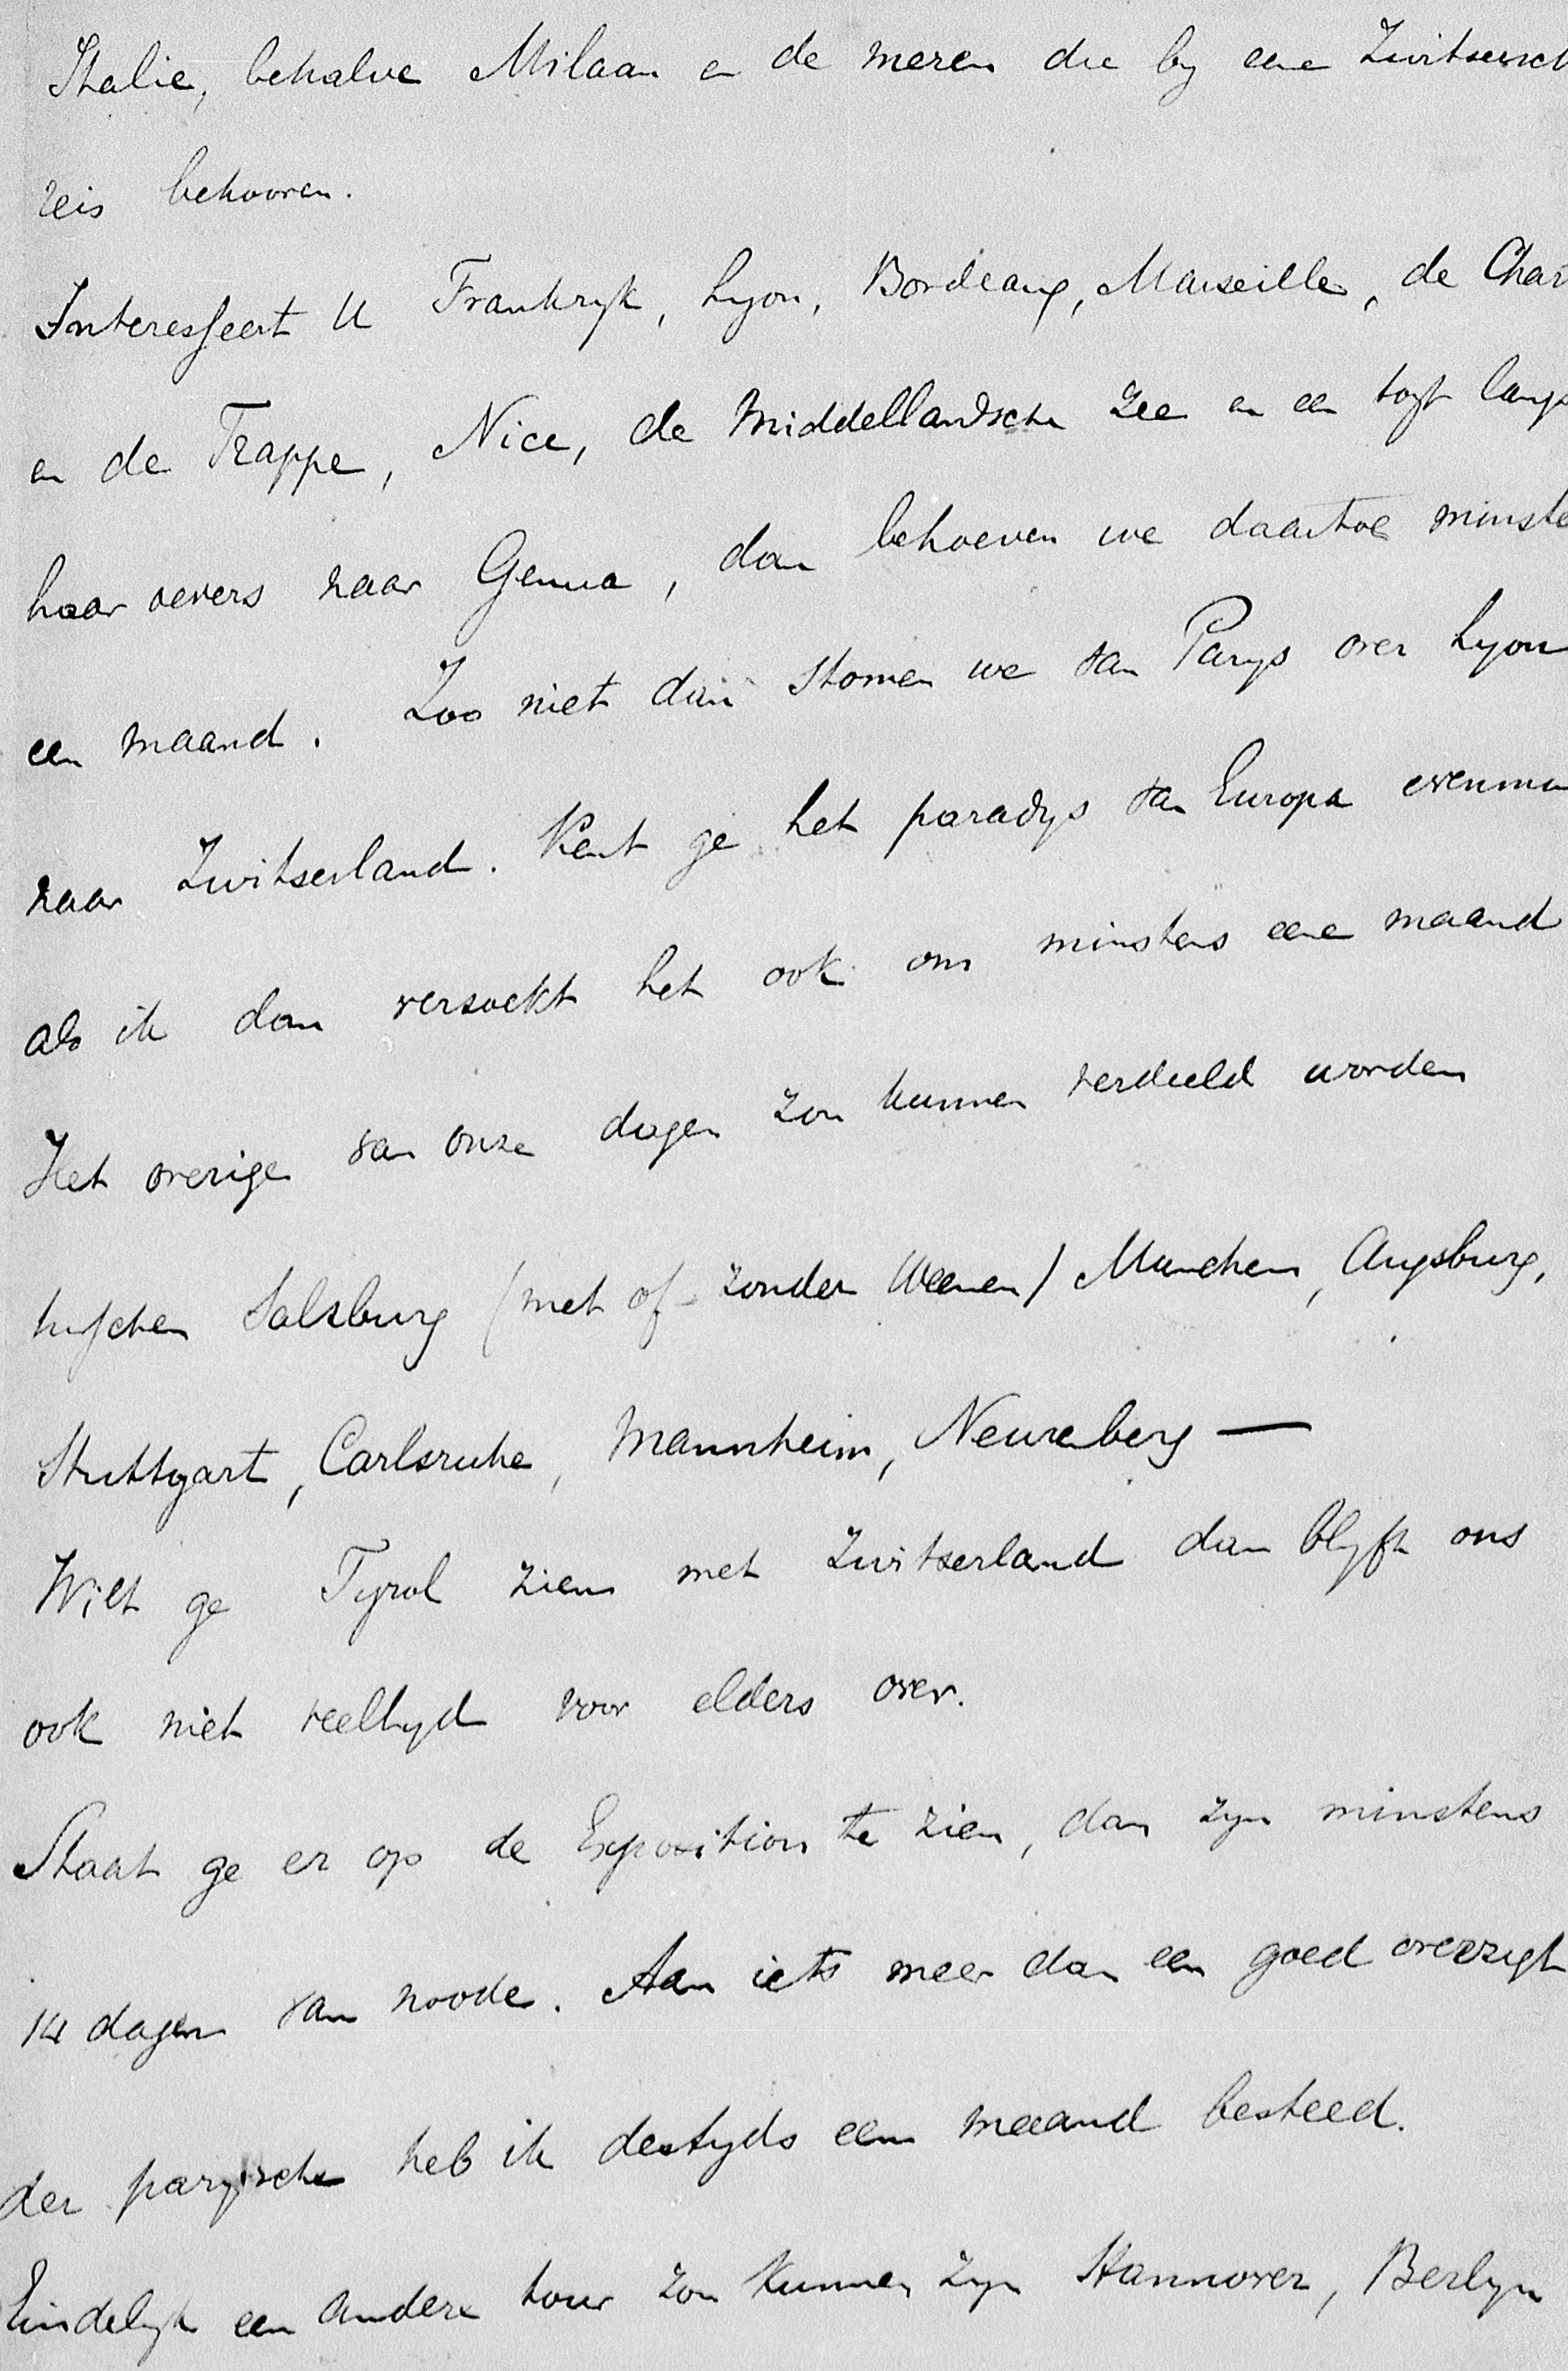 Italie, behalve Milaan en de meren die by eene Zwitsersch
reis behooren.
Interesseert U Frankryk, Lyon, Bordeaux, Marseille, de Char
en de Trappe, Nice, de Middellandsche Zee en een togt langs
haar oevers naar Genua, dan behoeven we daartoe minste
een maand. Zoo niet dan stomen we van Parys over Lyon
naar Zwitserland. Kent ge het paradys van Europa evenmin
als ik dan verzoekt het ook om minstens eene maand
Het overige van onze dagen zou kunnen verdeeld worden
tusschen Salzburg (met of zonder Weenen) Munchen, Augsburg,
Stuttgart, Carlsruhe, Mannheim, Neurenberg —
Wilt ge Tyrol zien met Zwitserland dan blyft ons
ook niet veel tyd voor elders over.
Staat ge er op de Exposition te zien, dan zyn minstens
14 dagen van noode. Aan iets meer dan een goed overzigt
der parysche heb ik destyds een maand besteed.
Eindelyk een andere tour zou kunnen zyn Hannover, Berlyn